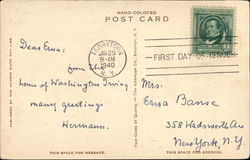 HAND-COLORED
POST CARD
Dear Erna:
from the
home of Washington Irving
many greetings
Hermann.
TARRYTOWN
JAN 29
9-AM
1940
N.Y.
FIRST DAY OF ISSUE
Mrs.
Erna Banse
358 Wadsworth Av
New York, N.Y
THIS SPACE FOR MESSAGE.
THIS SPACE FOR ADDRESS.